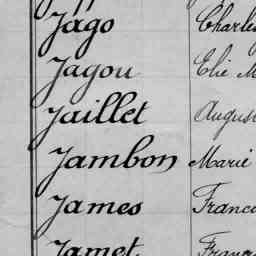 Jago Charles
Jagou Elie M
Jaillet August
Jambon Marie
James Franco
Jamet Franç